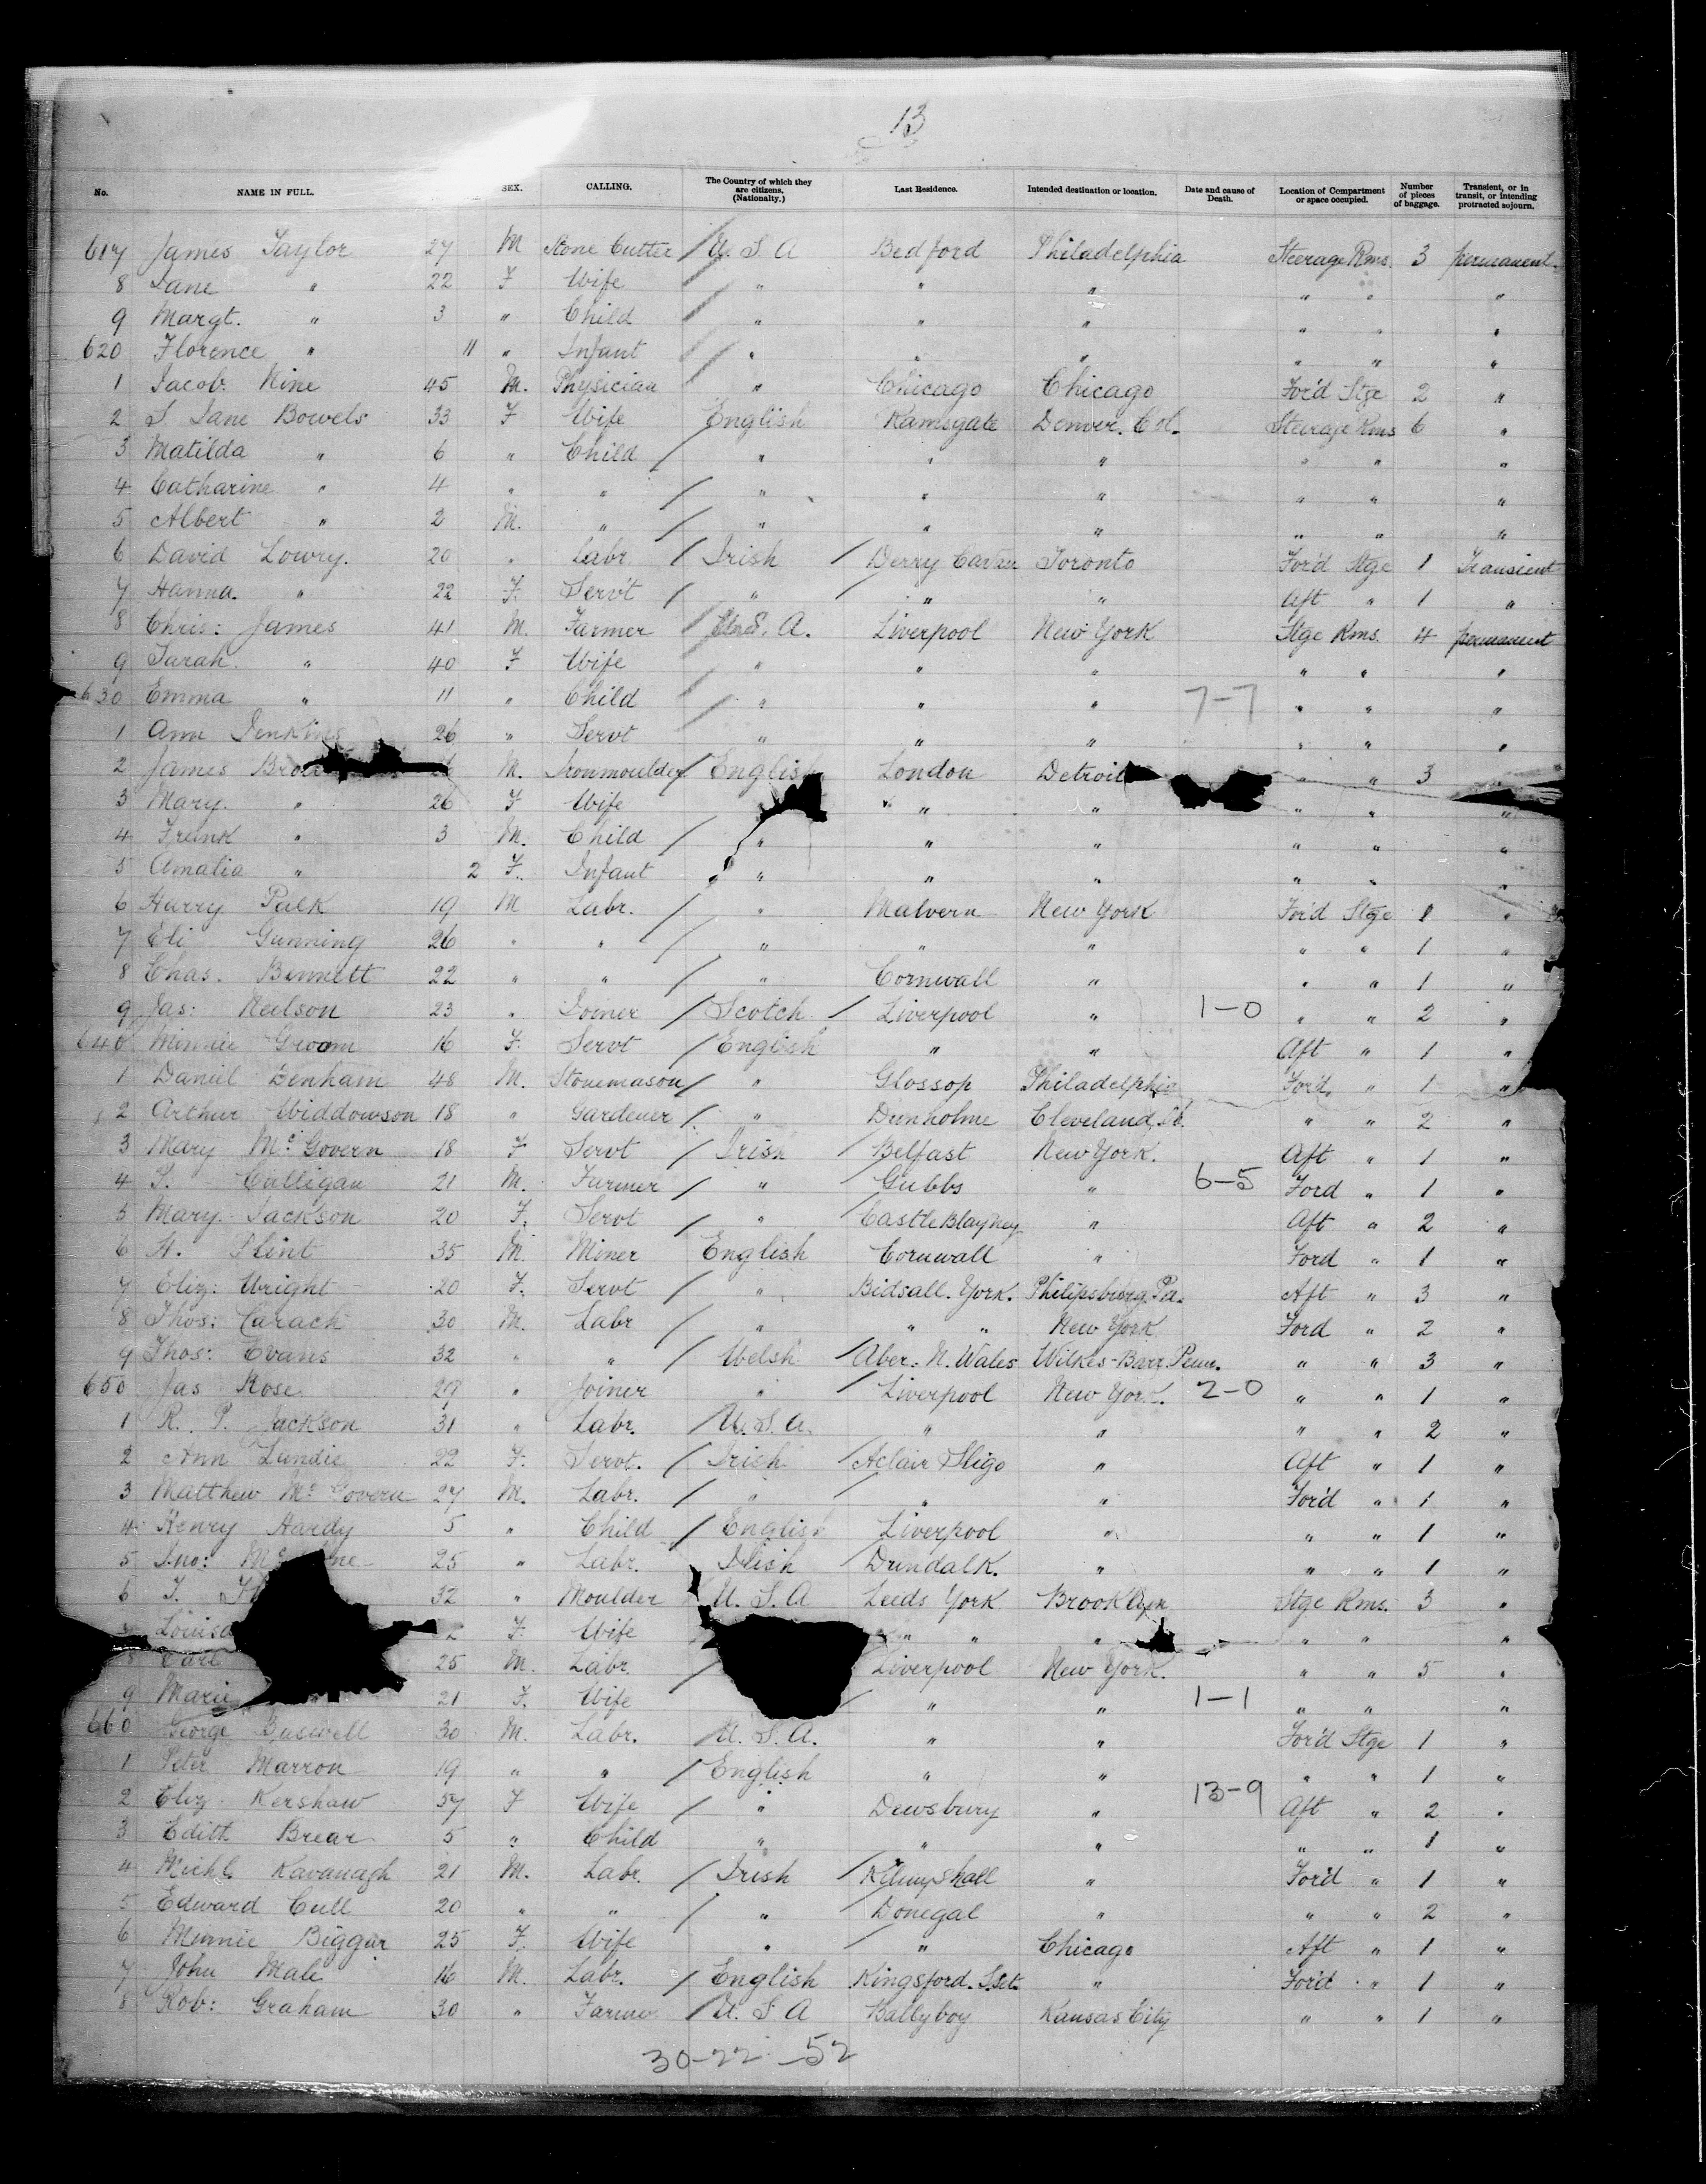 13
No. NAME IN FULL. SEX. CALLING. The Country of which they are citizens. (Nationalty.) Last Residence. Intended destination or location. Date and cause of Death. Location of Compartment or space occupied. Number of pieces of baggage. Transient, or in transit, or intending protracted sojourn.
617 James Taylor 27 M Stone Cutter U. S. A Bedford Philadelphia Steerage Rms. 3 permanent.
8 Jane " 22 F Wife " " " " " "
9 Margt. " 3 " Child " " " " " "
620 Florence " 11 " Infant " " " " " "
1 Jacob Nine 45 M. Physician " Chicago Chicago For'd Stge 2 "
2 S Jane Bowels 33 F Wife English Ramsgate Denver. Col. Steerage Rms 6 "
3 Matilda " 6 " Child " " " " " "
4 Catharine " 4 " " " " " " " "
5 Albert " 2 M. " " " " " " "
6 David Lowry. 20 " Labr Irish Derry Cavan Toronto For'd Stge 1 Transient
7 Hanna. " 22 F. Serv't " " " Aft " 1 "
8 Chris: James 41 M. Farmer U.S. A. Liverpool New York Stge Rms. 4 permanent
9 Sarah. " 40 F Wife " " " " " "
630 Emma " 11 " Child " " " 7-7 " " "
1 Ann Jenkins 26 " Servt " " " " " "
2 James M. Ironmoulder English London Detroit " " 3 "
3 Mary. " 26 F Wife " " " " "
4 Frank " 3 M. Child " " " " " "
5 Amalia " 2 F. Infant " " " " " "
6 Harry Palk 19 M Labr. " Malvern New York For'd Stge 1 "
7 Eli Gunning 26 " " " " " " " 1 "
8 Chas. Bennett 22 " " " Cornwall " " " 1 "
9 Jas: Neilson 23 " Joiner Scotch Liverpool " 1-0 " " 2 "
640 Minnie Groom 16 F. Servt English " " Aft " 1 "
1 Daniel Benham 48 M. Stonemason " Glossop Philadelphia For'd. " 1 "
2 Arthur Widdowson 18 " Gardener " Dunholme Cleveland, " " 2 "
3 Mary Mc Govern 18 F Servt Irish Belfast New York. Aft " 1 "
4 Culligan 21 M. Farmer " Gubbs " 6-5 Ford " 1 "
5 Mary Jackson 20 F. Servt " Castle Blayney " Aft " 2 "
6 H. Flint 35 M. Miner English Cornwall " Ford " 1 "
7 Eliz: Wright 20 F. Servt " Bidsall. York. Philipsburg. Pa. Aft " 3 "
8 Thos: Carach 30 M. Labr " " " New York Ford " 2 "
9 Thos: Evans 32 " " Welsh Aber. N. Wales Wilkes-Barr. Penn. " " 3 "
650 Jas Rose 29 " Joiner " Liverpool New York. 2-0 " " 1 "
1 R. P. Jackson 31 " Labr. U. S. A. " " " " 2 "
2 Ann Lundie 22 F. Servt. Irish Aclair Sligo " Aft " 1 "
3 Matthew Mc Govern 27 M. Labr. " " " For'd " 1 "
4 Henry Hardy 5 " Child English Liverpool " " " 1 "
5 Jno: 25 " Labr. Irish Dundalk. " " " 1 "
6 32 " Moulder U. S. A Leeds York Brooklyn Stge Rms. 3 "
Louisa F. Wife " " " " " "
8 Carl 25 M. Labr. Liverpool New York. " " 5 "
9 Marie 21 F. Wife " " 1-1 " " "
660 George Baswell 30 M. Labr. U. S. A. " " For'd Stge 1 "
1 Peter Marron 19 " " English " " " " 1 "
2 Eliz. Kershaw 57 F Wife " Dewsbury " 13-9 Aft " 2 "
3 Edith Brear 5 " Child " " " " " 1 "
4 Michl Kavanagh 21 M. Labr. Irish " For'd " 1 "
5 Edward Cull 20 " " " Donegal " " " 2 "
6 Minnie Biggar 25 F. Wife " " Chicago Aft " 1 "
7 John Male 16 M. Labr. English Kingsford. " For'd " 1 "
8 Rob: Graham 30 " Farmer U. S. A Ballyboy Kansas City " " 1 "
30-22-52